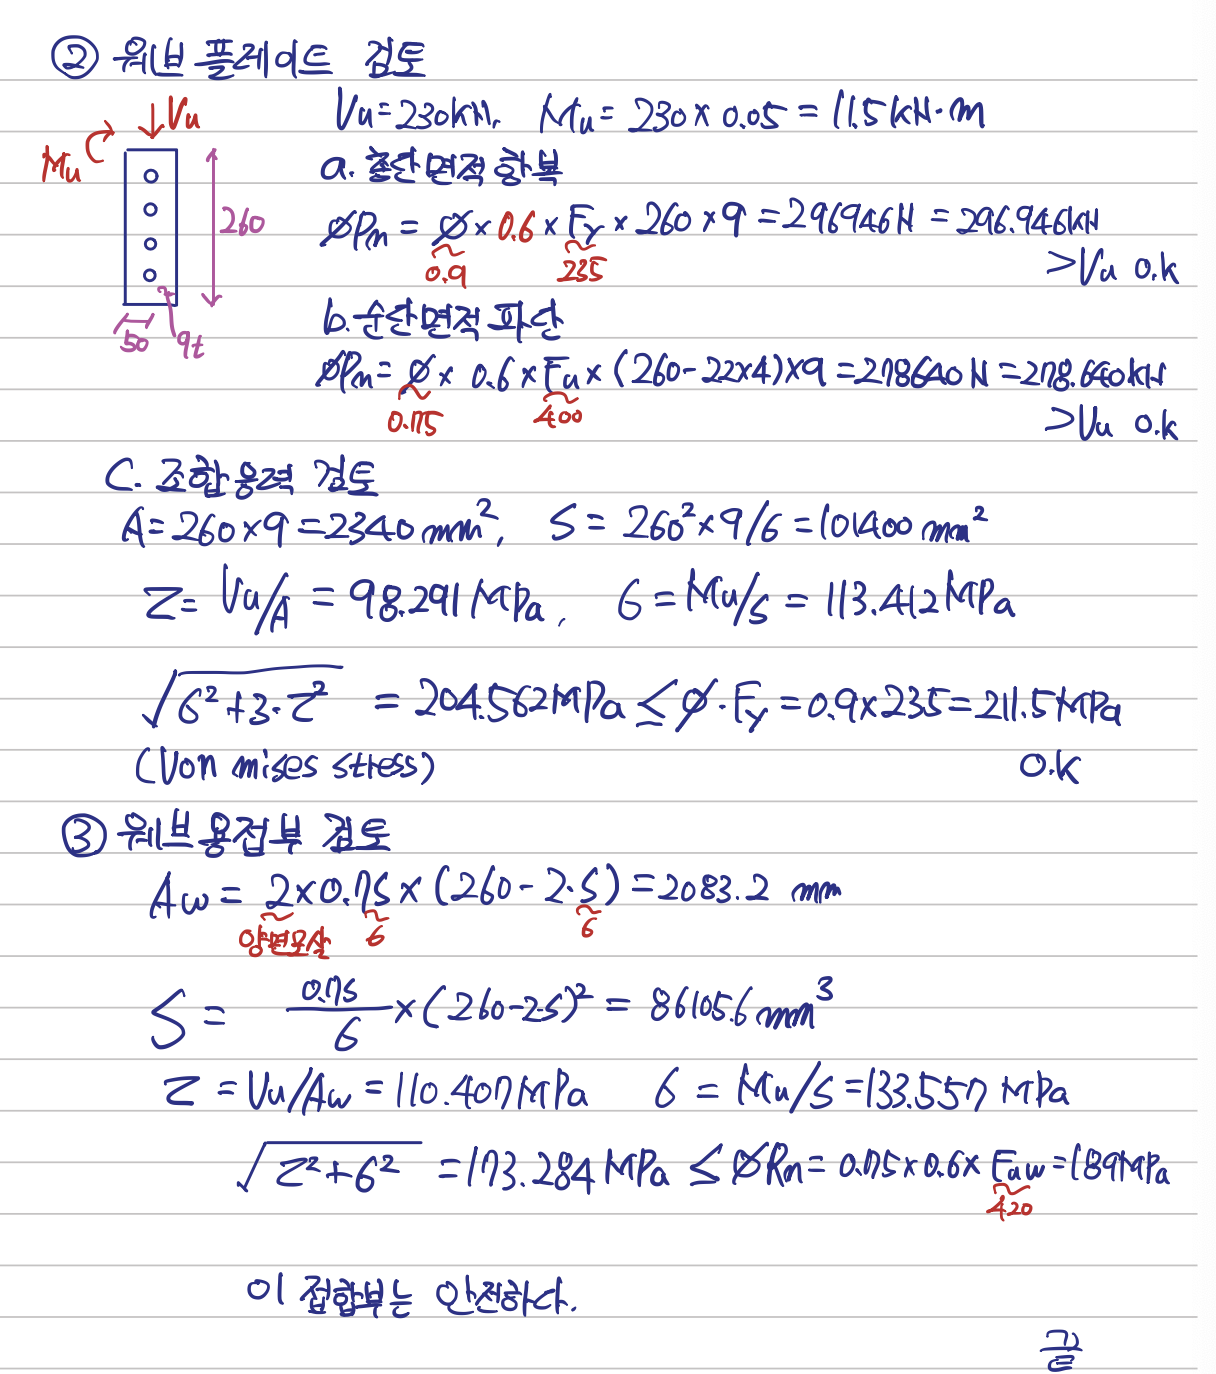 ② 위브 플레이트 검토
Vu = 230kN, Mu = 230 × 0.05 = 11.5 kN·m
Vu
Mu
260
50
9t
a. 총단면적 항복
ØPn = Ø × 0.6 × Fy × 260 × 9 = 296946N = 296.946kN
0.9 235
>Vu O.K
b. 순단면적 파단
ØPn = Ø × 0.6 × Fu × (260-22×4)×9 = 278640N = 278.640kN
0.75 400
>Vu O.K
C. 조합응력 검토
A = 260×9 = 2340 mm², S = 260²×9/6 = 101400 mm²
τ = Vu/A = 98.291 MPa, б = Mu/S = 113.412 MPa
√б²+3·τ² = 204.562MPa ≤ Ø·Fy = 0.9×235 = 211.5MPa
(Von mises stress) O.K
③ 위브용접부 검토
Aw = 2×0.7S×(260-2·S) = 2083.2 mm
양면모살 6 6
S = 0.7S/6 × (260-2S)² = 86105.6 mm³
τ = Vu/Aw = 110.407MPa б = Mu/S = 133.557 MPa
√τ²+б² = 173.284 MPa ≤ ØRn = 0.75×0.6×Fuw = 189MPa
420
이 접합부는 안전하다.
끝